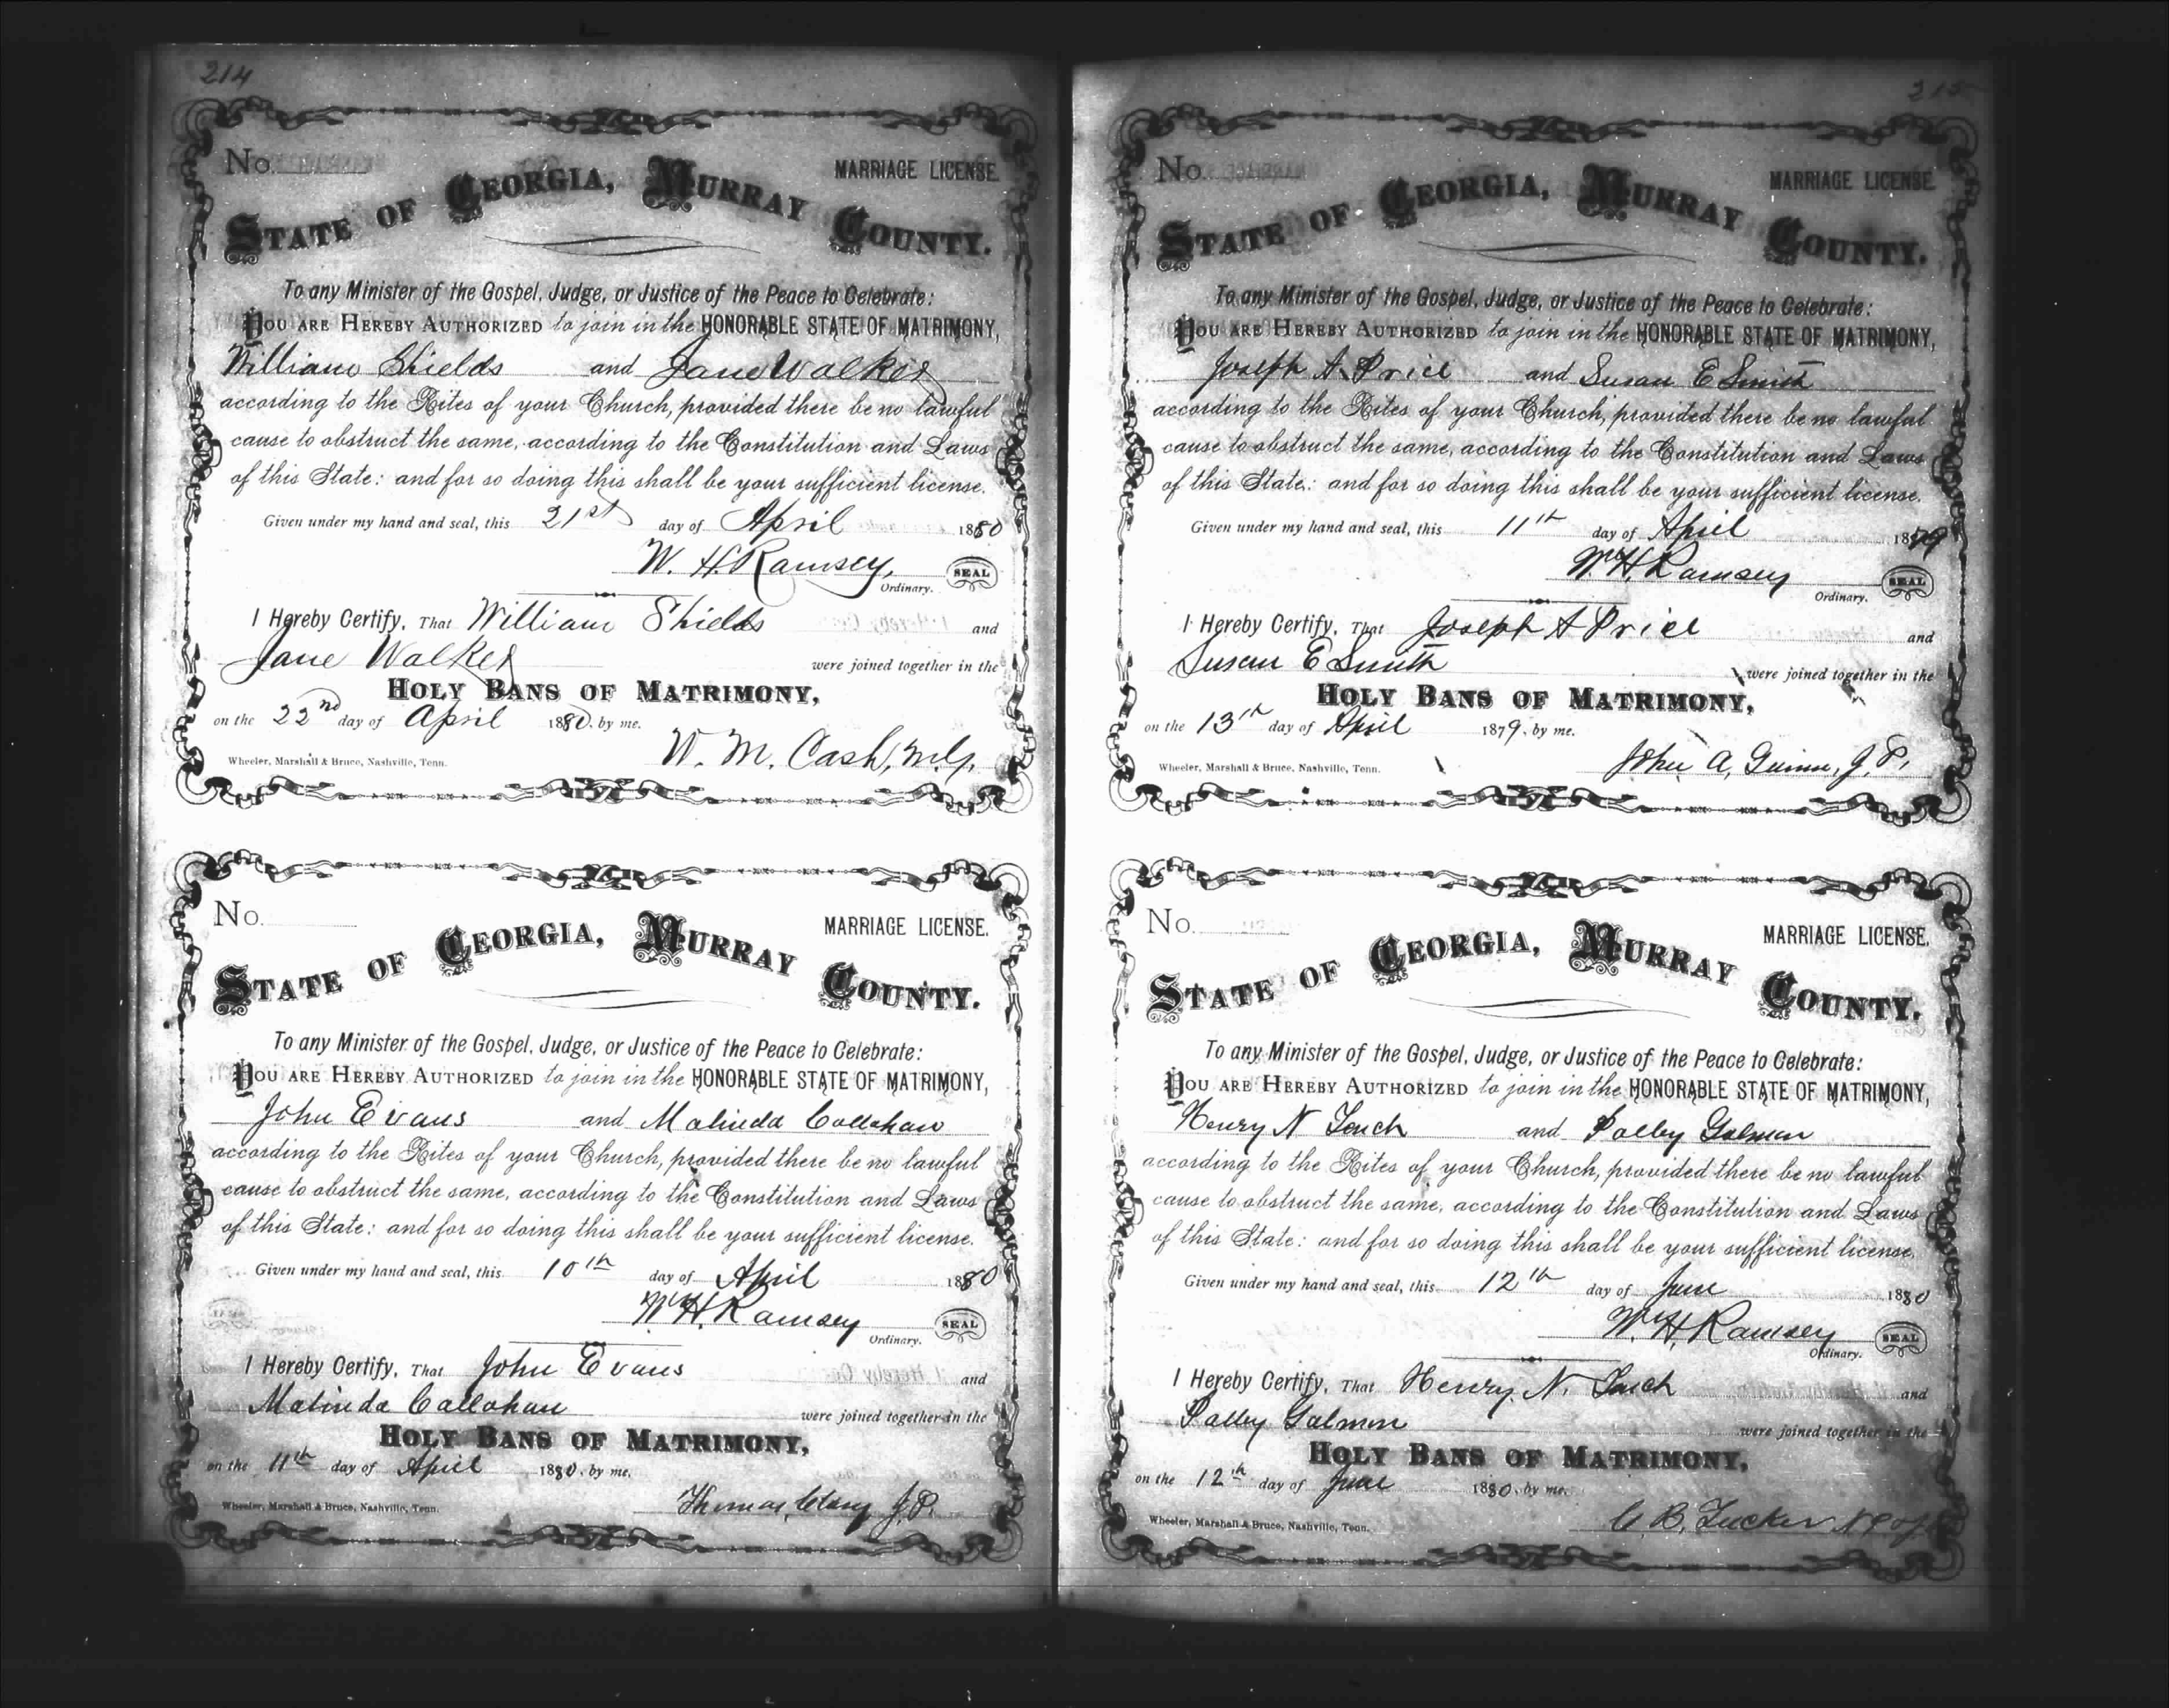 214
No.
MARRIAGE LICENSE.
STATE OF GEORGIA, MURRAY COUNTY.
To any Minister of the Gospel, Judge, or Justice of the Peace to Celebrate:
YOU ARE HEREBY AUTHORIZED to join in the HONORABLE STATE OF MATRIMONY,
William Shields and Jane Walker
according to the Rites of your Church, provided there be no lawful
cause to obstruct the same, according to the Constitution and Laws
of this State: and for so doing this shall be your sufficient license.
Given under my hand and seal, this 21st day of April 1880
W. H. Ramsey, SEAL
Ordinary.
I Hereby Certify, That William Shields and
Jane Walker were joined together in the
HOLY BANS OF MATRIMONY,
on the 22nd day of April 1880. by me.
W. M. Cash, M.G.
Wheeler, Marshall & Bruce, Nashville, Tenn.
No.
MARRIAGE LICENSE.
STATE OF GEORGIA, MURRAY COUNTY.
To any Minister of the Gospel, Judge, or Justice of the Peace to Celebrate:
YOU ARE HEREBY AUTHORIZED to join in the HONORABLE STATE OF MATRIMONY,
John Evans and Malinda Callahan
according to the Rites of your Church, provided there be no lawful
cause to obstruct the same, according to the Constitution and Laws
of this State: and for so doing this shall be your sufficient license.
Given under my hand and seal, this 10th day of April 1880
Wm H. Ramsey SEAL
Ordinary.
I Hereby Certify, That John Evans and
Malinda Callahan were joined together in the
HOLY BANS OF MATRIMONY,
on the 11th day of April 1880. by me.
Thomas J.P.
Wheeler, Marshall & Bruce, Nashville, Tenn.
215
No.
MARRIAGE LICENSE.
STATE OF GEORGIA, MURRAY COUNTY.
To any Minister of the Gospel, Judge, or Justice of the Peace to Celebrate:
YOU ARE HEREBY AUTHORIZED to join in the HONORABLE STATE OF MATRIMONY,
Joseph A Price and Susan E Smith
according to the Rites of your Church, provided there be no lawful
cause to obstruct the same, according to the Constitution and Laws
of this State: and for so doing this shall be your sufficient license.
Given under my hand and seal, this 11th day of April 1879
Wm H. Ramsey SEAL
Ordinary.
I Hereby Certify, That Joseph A Price and
Susan E Smith were joined together in the
HOLY BANS OF MATRIMONY,
on the 13th day of April 1879. by me.
John A, J.P.
Wheeler, Marshall & Bruce, Nashville, Tenn.
No.
MARRIAGE LICENSE.
STATE OF GEORGIA, MURRAY COUNTY.
To any Minister of the Gospel, Judge, or Justice of the Peace to Celebrate:
YOU ARE HEREBY AUTHORIZED to join in the HONORABLE STATE OF MATRIMONY,
Henry N and
according to the Rites of your Church, provided there be no lawful
cause to obstruct the same, according to the Constitution and Laws
of this State: and for so doing this shall be your sufficient license.
Given under my hand and seal, this 12th day of June 1880
Wm H. Ramsey SEAL
Ordinary.
I Hereby Certify, That Henry N. and
were joined together in the
HOLY BANS OF MATRIMONY,
on the 12th day of June 1880. by me.
C. B. Tucker
Wheeler, Marshall & Bruce, Nashville, Tenn.